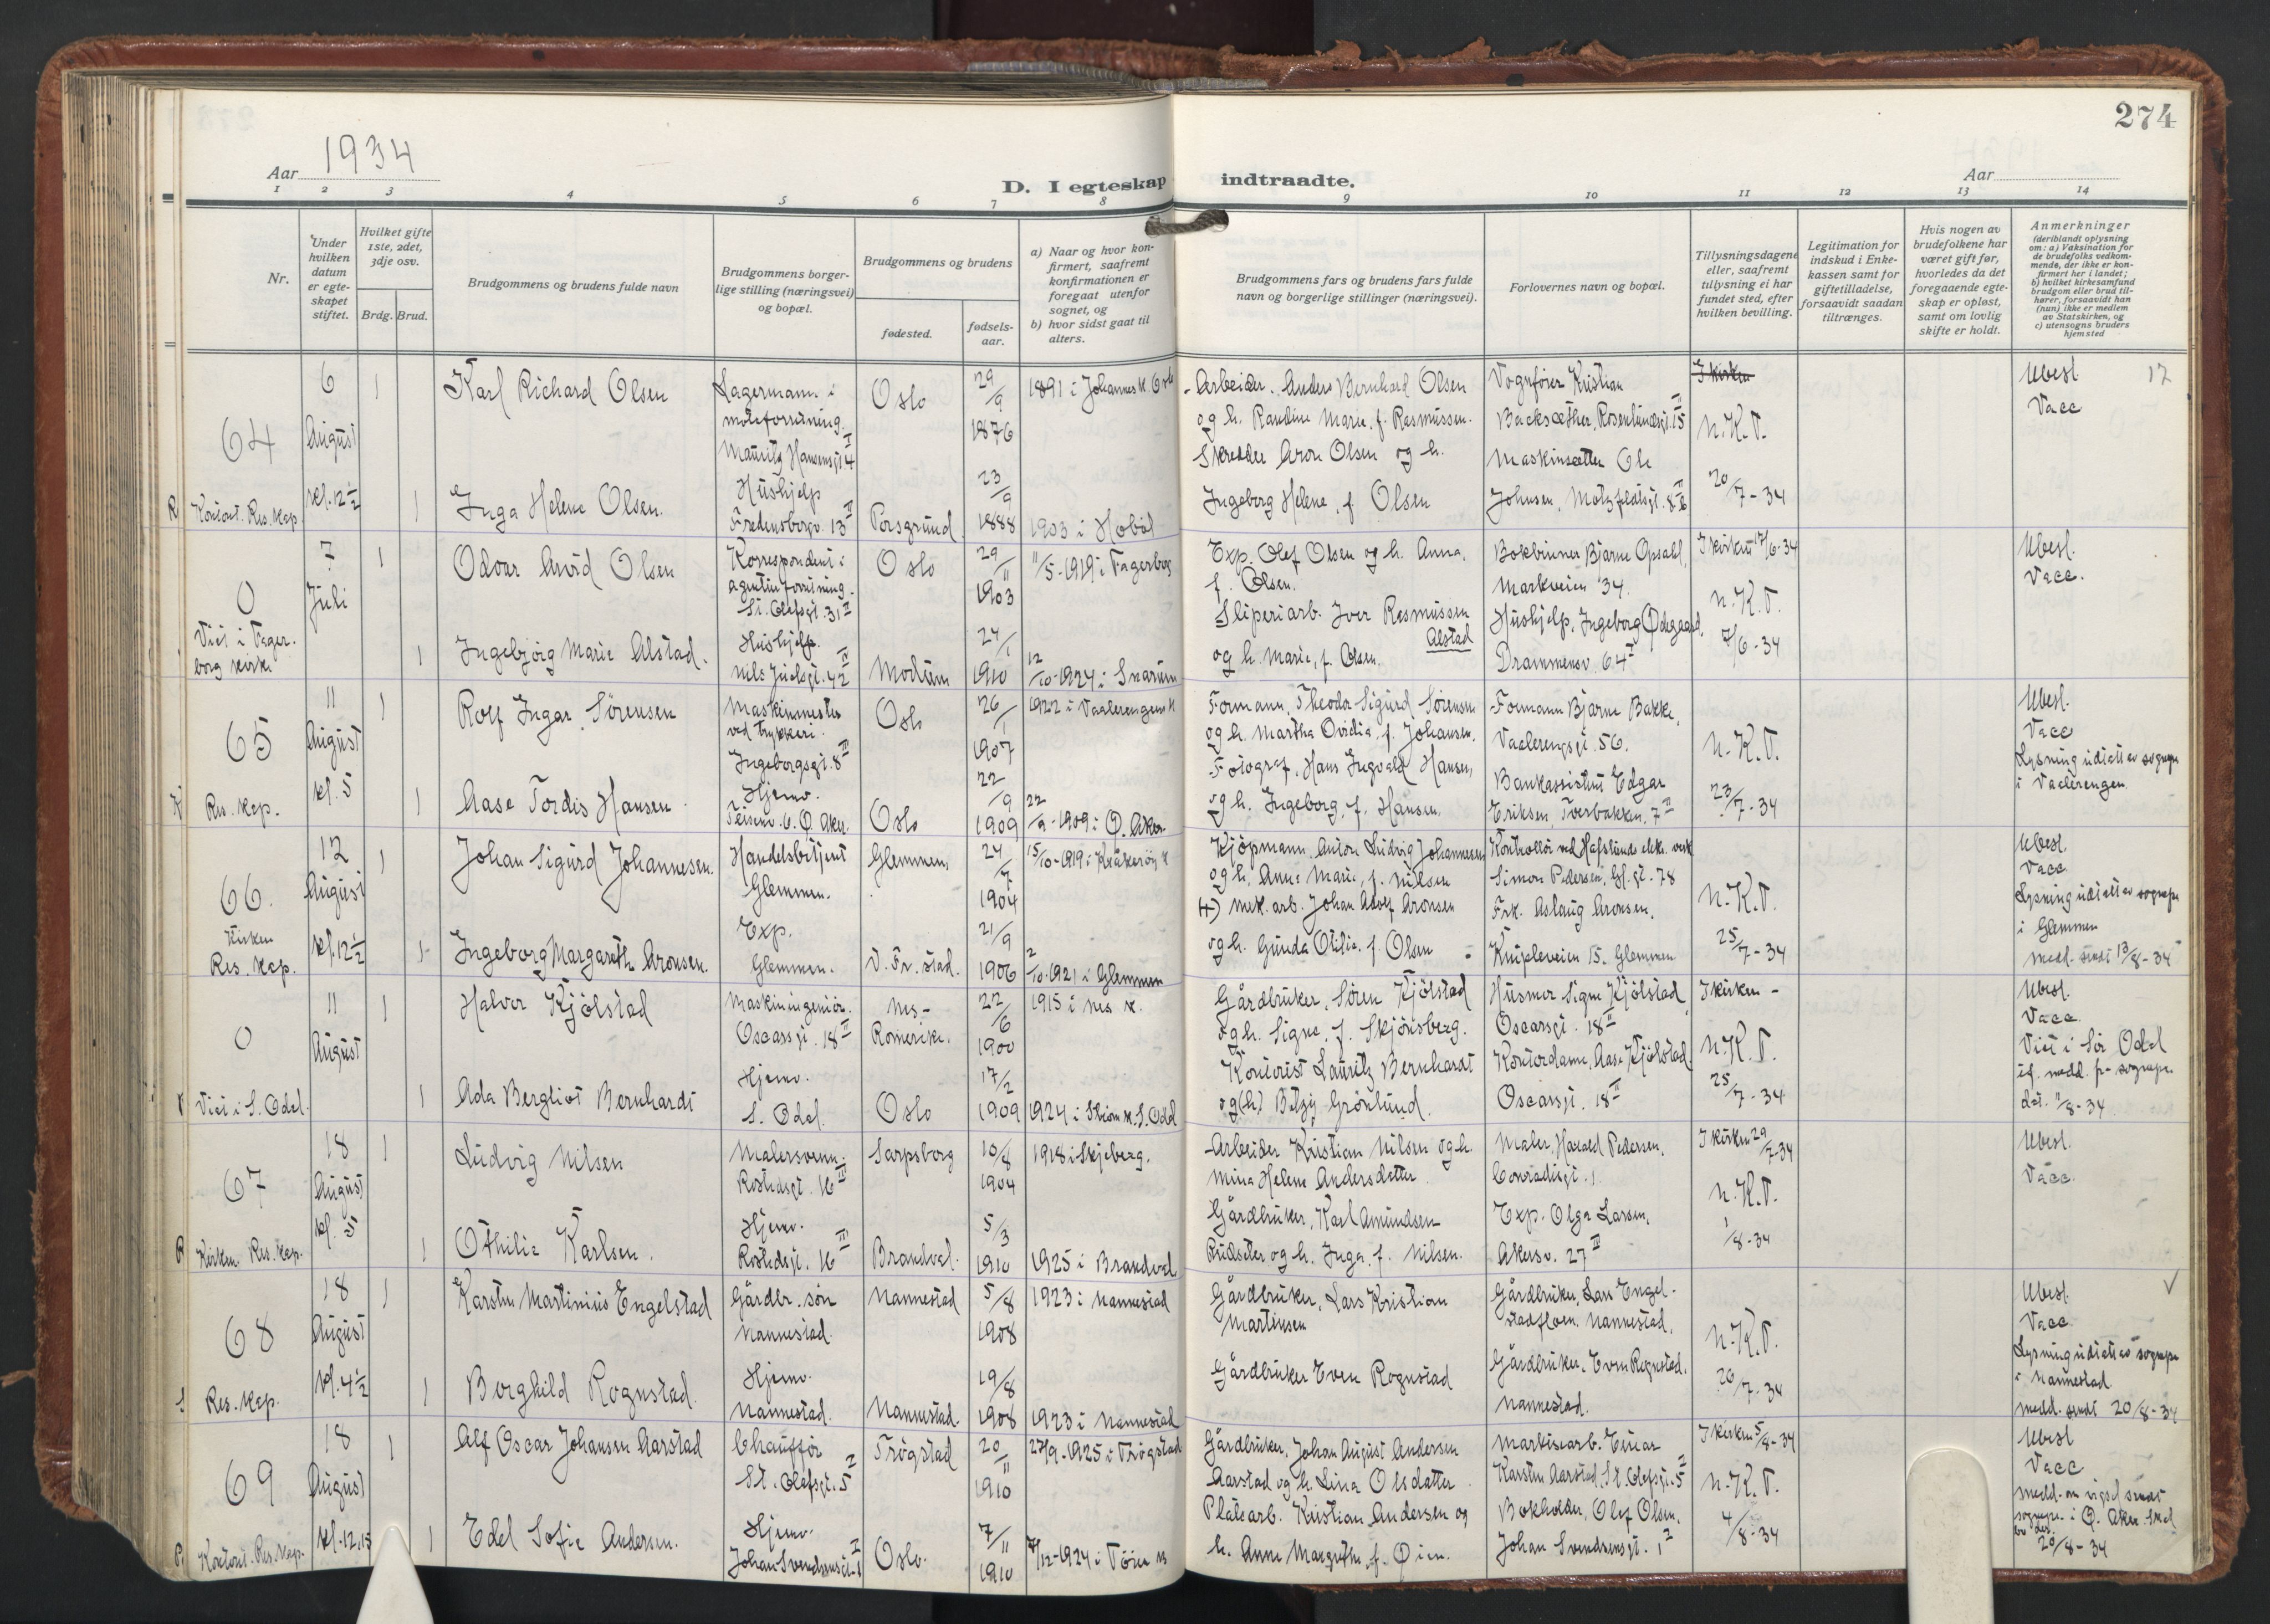 274
Aar 1934
D. I egteskap indtraadte.
Aar
1 2 3 4 5 6 7 8 9 10 11 12 13 14
Nr.
Under hvilken datum er egteskapet stiftet.
Hvilket gifte 1ste, 2det, 3dje osv.
Brdg. Brud.
Brudgommens og brudens fulde navn
Brudgommens borgerlige stilling (næringsvei) og bopæl.
Brudgommens og brudens
fødested.
fødselsaar.
a) Naar og hvor konfirmert, saafremt konfirmationen er foregaat utenfor sognet, og
b) hvor sidst gaat til alters.
Brudgommens fars og brudens fars fulde navn og borgerlige stillinger (næringsvei).
Forlovernes navn og bopæl.
Tillysningsdagene eller, saafremt tillysning ei har fundet sted, efter hvilken bevilling.
Legitimation for indskud i Enkekassen samt for giftetilladelse, forsaavidt saadan tiltrænges.
Hvis nogen av brudefolkene har været gift før, hvorledes da det foregaaende egteskap er opløst, samt om lovlig skifte er holdt.
Anmerkninger
(deriblandt oplysning om: a) Vaksination for de brudefolks vedkommende, der ikke er konfirmert her i landet; b) hvilket kirkesamfund brudgom eller brud tilhører, forsaavidt han (hun) ikke er medlem av Statskirken, og c) utensogns bruders hjemsted
64
Kontoret. Res. kap.
6 August kl. 12½
1
Karl Richard Olsen
Lagermann i moteforretning. Mauritz Hansensgt. 4 I
Oslo
29/9 1876
1891 i Johannes K. Oslo
Arbeider. Anders Bernhard Olsen og h. Randine Marie, f. Rasmussen.
Vognfører Kristian Backsæther, Rosenlundsgt. 15 II
I kirken
N.K.T.
20/7-34
Ubesl. 17
Vacc
1
Inga Helene Olsen.
Hushjelp Fredensborgv. 13 II
Porsgrund
23/9 1888
1903 i Hobøl
Skredder Aron Olsen og h. Ingeborg Helene, f. Olsen
Maskinsetter Ole Johnsen, Motzfeldtsgt. 8 II
0
Viet i Fagerborg kirke
7 Juli
1
Odvar Arvid Olsen
Korrespondent i agenturforretning. St. Olafsgt. 31 II
Oslo
29/11 1903
11/5-1919 i Fagerborg
Exp. Olef Olsen og h. Anna, f. Olsen.
Bokbinner Bjarne Opsahl, Markveien 34.
I kirken 17/6-34
N.K.T.
7/6-34
Ubesl.
Vacc.
1
Ingebjørg Marie Alstad.
Hushjelp. Nils Juelsgt. 42 IV
Modum
24/1 1910
12/10-1924 i Snarum
Sliperiarb. Iver Rasmussen Alstad og h. Marie, f. Olsen.
Hushjelp, Ingeborg Ødegaard, Drammensv. 64 I
65
Res. kap.
11 August kl. 5
1
Rolf Ingar Sørensen
Maskinmester ved trykkeri. Ingeborgsgt. 8 III
Oslo
26/1 1907
1922 i Vaalerengens K
Formann, Theodor Sigurd Sørensen og h. Martha Ovidia, f. Johansen.
Formann Bjarne Bakke, Vaalerengsgt. 56.
N.K.T.
23/7-34
Ubesl.
Vacc
Lysning utstedt av sognepr. i Vaalerengen.
1
Aase Tordis Hansen
Hjemv. Teisenv. 6. Ø. Aker.
Oslo
22/9 1909
22/9-1909 i Ø. Aker
Fotograf, Hans Ingvald Hansen, og h. Ingeborg, f. Hansen.
Bankassistent Edgar Eriksen, Tverbakken. 7 II
66.
Kirken Res. kap.
12 August kl. 12½
1
Johan Sigurd Johannesen.
Handelsbetjent Glemmen.
Glemmen
24/7 1904
15/10-1919 i Kråkerøy K
Kjøpmann, Anton Ludvig Johannesen og h. Anna Marie, f. Nilsen
Kontrollør ved Hafslunds elek. verk Simon Pedersen, Gl. gt. 78
N.K.T.
25/7-34
Ubesl.
Vacc
Lysning utstedt av sognepr. i Glemmen
medd. sendt 13/8-34
1
Ingeborg Margareth Aronsen.
Exp. Glemmen.
V. Fr.stad.
21/9 1906
2/10-1921 i Glemmen
Mek. arb. Johan Adolf Aronsen og h. Gunda Otilie, f. Olsen
Frk. Aslaug Aronsen, Knipleveien 15. Glemmen
0
Viet i S. Odal.
11 August
1
Halvor Kjølstad
Maskiningeniør. Oscarsgt. 18 II
Nes - Romerike.
22/6 1900
1915 i Nes K.
Gårdbruker, Søren Kjølstad og h. Signe, f. Skjønsberg.
Husmor Signe Kjølstad, Oscarsgt. 18 II
I kirken -
N.K.T.
25/7-34
Ubesl.
Vacc.
Viet i Sør Odal if. medd. fr. sognepr. dat. 11/8-34
1
Ada Bergliot Bernhardt
Hjemv. S. Odal.
Oslo
17/2 1909
1924 i Strøm K. S. Odal
Kontorist Lauritz Bernhardt og (h) Betzy Grønlund.
Kontordame, Aase Kjølstad, Oscarsgt. 18 II
67
Kirken Res. kap.
18 August kl. 5
1
Ludvig Nilsen
Malersvenn. Rostedsgt. 16 III
Sarpsborg
10/8 1904
1918 i Skjeberg.
Arbeider Kristian Nilsen og h. Mina Helene Andersdatter.
Maler, Harald Pedersen, Conradisgt. 1
I kirken 29/7-34
N.K.T.
1/8-34
Ubesl.
Vacc.
1
Othilie Karlsen.
Hjemv. Rostedsgt. 16 III
Brandval.
5/3 1910
1925 i Brandval
Gårdbruker, Karl Amundsen Rudseter og h. Inga, f. Nilsen.
Exp. Olga Larsen, Akersv. 27 III
68
Res. kap.
18 August kl. 4½
1
Karsten Martinius Engelstad
Gårdbr. søn Nannestad.
Nannestad
5/8 1908
1923 i Nannestad
Gårdbruker, Lars Kristian Martinsen
Gårdbruker, Lars Engelstadfloen. Nannestad,
N.K.T.
26/7-34
Ubesl.
Vacc.
Lysning utstedt av sognepr. i Nannestad
medd. sendt 20/8-34
1
Borghild Rognstad.
Hjemv. Nannestad.
Nannestad.
19/8 1908
1923 i Nannestad
Gårdbruker Even Rognstad
Gårdbruker. Even Rognstad. Nannestad.
69
Kontoret. Res. kap.
18 August kl. 12,15
1
Alf Oscar Johansen Aarstad
Chauffør St. Olafsgt. 5 I
Trøgstad
20/11 1910
27/9-1925 i Trøgstad
Gårdbruker, Johan August Andersen Aarstad og h. Lina Olsdatter
Markisearb. Einar Karsten Aarstad, St. Olafsgt. 5 II
I kirken 5/8-34
N.K.T.
4/8-34
Ubesl
Vacc
medd. om vigsel sendt sognepr. i Ø. Aker
20/8-34
1
Edel Sofie Andersen.
Hjemv. Johan Svendsensgt. 1 I
Oslo.
7/11 1910
7/12-1924 i Tøien K
Platearb. Kristian Andersen og h. Anna Margrethe, f. Øien.
Bokholder, Olef Olsen, Johan Svendsensgt. 1 I